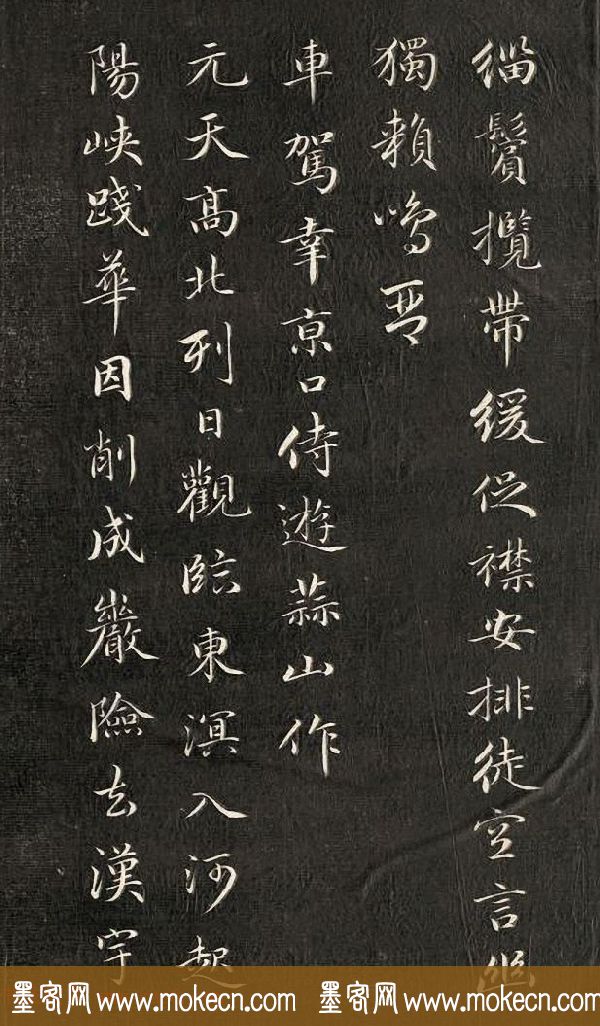 緇鬢攬帶緩促襟安排徒空言幽
獨賴鳴琴
車駕幸京口侍遊蒜山作
元天高北列日觀臨東溟入河起
陽峽踐華因削成巖險去漢宇
墨客网 www.mokecn.com 墨客网 www.mokecn.com